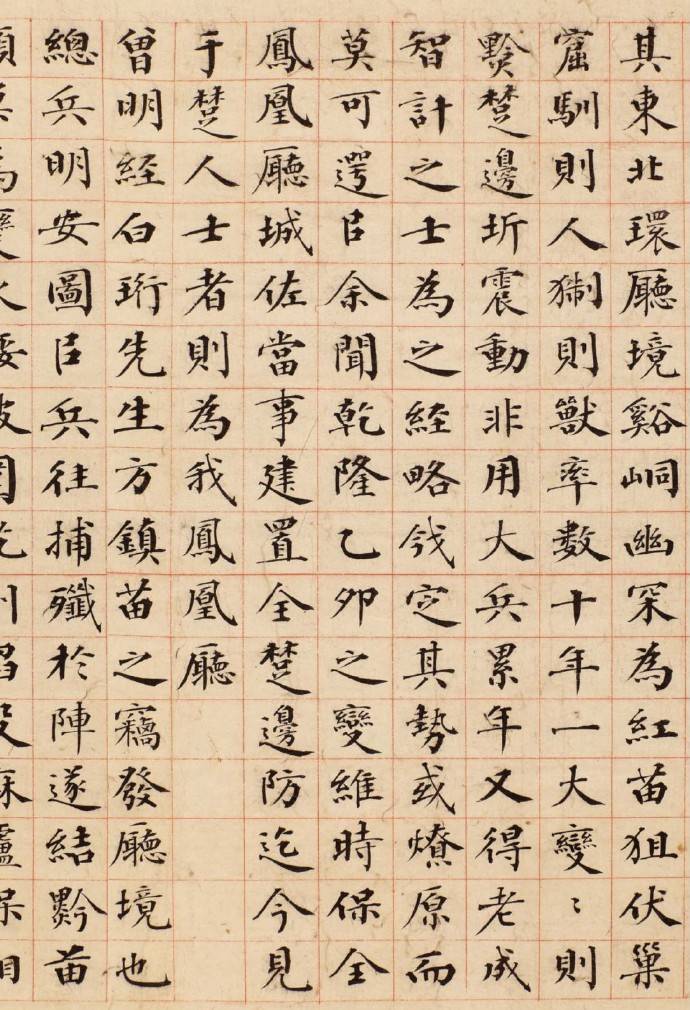 其東北環廳境谿峒幽罙為紅苗狙伏巢
窟馴則人猘則獸率數十年一大變〻則
黔楚邊圻震動非用大兵累年又得老成
智計之士為之經略𢦟定其勢或燎原而
莫可遌㠯余聞乾隆乙卯之變維時保全
鳳凰廳城佐當事建置全楚邊防迄今見
于楚人士者則為我鳳凰廳
曾明經白珩先生方鎮苗之竊發廳境也
總兵明安圖㠯兵往捕殲於陣遂結黔苗